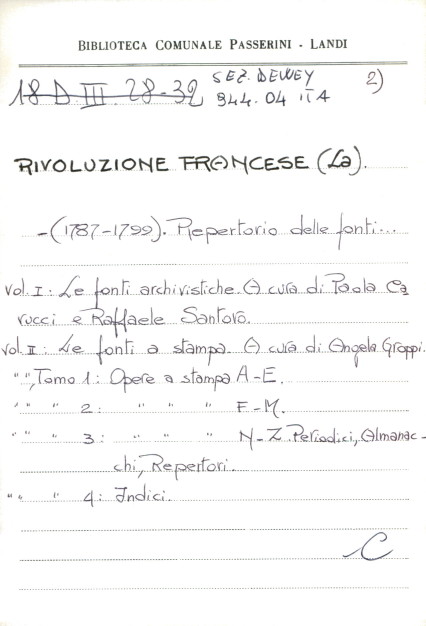 BIBLIOTECA COMUNALE PASSERINI - LANDI
18 D. III. 28-32 SEZ. DEWEY 2)
944.04 ITA
RIVOLUZIONE FRANCESE (La).
-(1787-1799). Repertorio delle fonti...
vol. I: Le fonti archivistiche. A cura di Paola Ca
rucci e Raffaele Santoro.
vol. II: Le fonti a stampa. A cura di Angela Groppi.
" ", Tomo 1: Opere a stampa A-E.
" " " 2: " " " F-M.
" " " 3: " " " N-Z. Periodici, Almanac-
chi, Repertori.
" " 4: Indici.
C